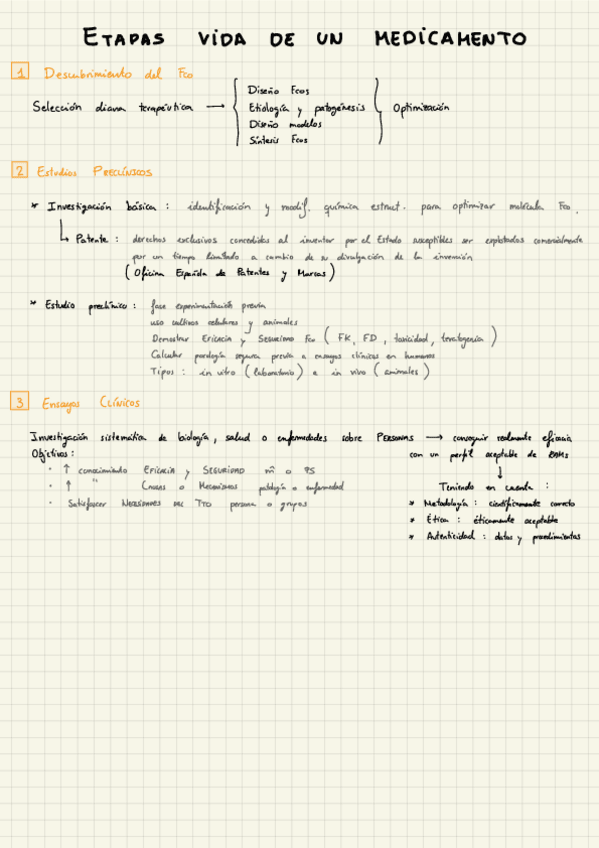 ETAPAS VIDA DE UN MEDICAMENTO
1 Descubrimiento del Fco
Selección diana terapéutica → Diseño Fcos
Etiología y patogénesis
Diseño modelos
Síntesis Fcos
Optimización
2 Estudios PRECLÍNICOS
* Investigación básica: identificación y modif. química estruct. para optimizar molécula Fco.
Patente: derechos exclusivos concedidos al inventor por el Estado susceptibles ser explotados comercialmente
por un tiempo limitado a cambio de su divulgación de la invención
(Oficina Española de Patentes y Marcas)
* Estudio preclínico: fase experimentación previa
uso cultivos celulares y animales
Demostrar EFICACIA y SEGURIDAD Fco (FK, FD, toxicidad, teratogenia)
Calcular posología segura previa a ensayos clínicos en humanos
Tipos: in vitro (laboratorio) o in vivo (animales)
3 Ensayos CLÍNICOS
Investigación sistemática de biología, salud o enfermedades sobre PERSONAS → conseguir realmente eficacia
con un perfil aceptable de RAMs
Objetivos:
· ↑ conocimiento EFICACIA y SEGURIDAD m o PS
· ↑ " CAUSAS o MECANISMOS patología o enfermedad
· Satisfacer NECESIDADES DEL TTO persona o grupos
↓
Teniendo en cuenta:
* Metodología: científicamente correcto
* Ética: éticamente aceptable
* Autenticidad: datos y procedimientos